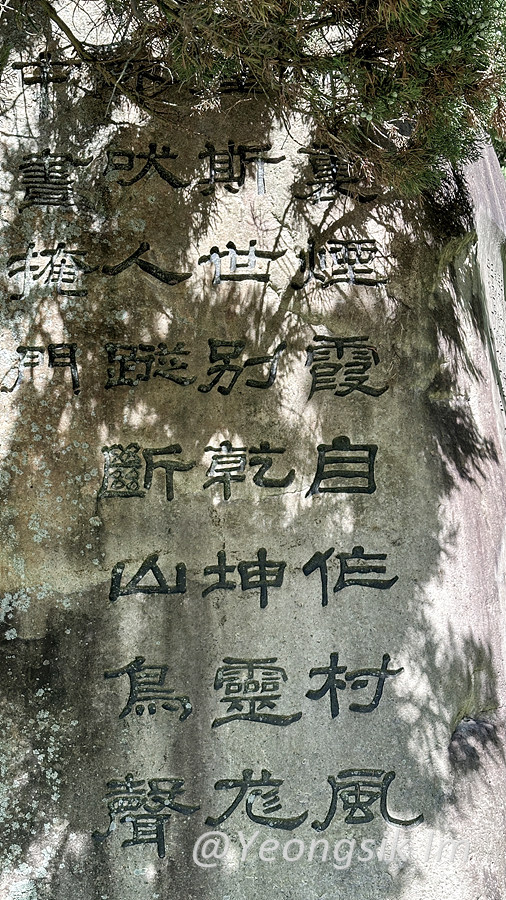 裏煙霞自作村風
斯世別乾坤靈尨
不吠人蹤斷山鳥聲
中晝掩門
@Yeongsik Im